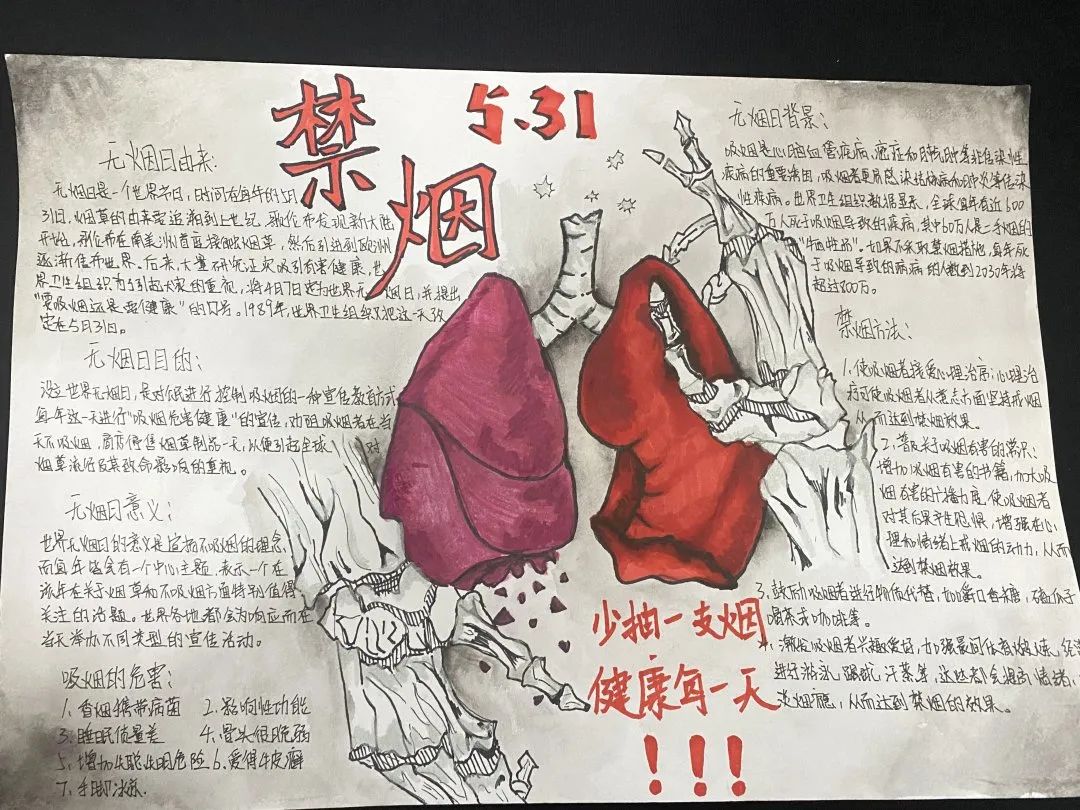 禁烟
5.31
无烟日由来:
无烟日是一个世界节日,时间在每年的5月
31日,烟草的由来要追溯到十七世纪,哥伦布发现新大陆
开始,哥伦布在南美洲首度接触烟草,然后引进到欧洲
逐渐传开世界。后来,大量研究证实吸烟有害健康,世
界卫生组织为引起大家的重视,将4月7日定为世界无烟日,并提出
"要吸烟还是要健康"的口号。1989年,世界卫生组织又把这一天改
定在5月31日。
无烟日目的:
设立世界无烟日,是对人民进行控制吸烟的一种宣传教育方式
每年这一天进行"吸烟危害健康"的宣传,劝阻吸烟者在当
天不吸烟,商店停售烟草制品一天,以便引起全球对
烟草流行及其致命影响的重视。
无烟日意义:
世界无烟日的意义是宣扬不吸烟的理念,
而每年皆会有一个中心主题,表示一个在
该年在关于烟草和不吸烟方面特别值得
关注的话题。世界各地都会为响应而在
当天举办不同类型的宣传活动。
吸烟的危害:
1、香烟携带病菌 2、影响性功能
3、睡眠质量差 4、骨头很脆弱
5、增加失聪失明危险 6、爱得牛皮癣
7、手脚冰凉.
无烟日背景:
吸烟是心脑血管疾病、癌症和肺等非传染性
疾病的重要诱因,吸烟者更易感染结核病和肺炎等传染
性疾病。世界卫生组织数据显示,全球每年有近600
万人死于吸烟导致的疾病,其中60万人是二手烟的
"牺牲品"。如果不采取禁烟措施,每年死
于吸烟导致的疾病的人数到2030年将
超过800万。
禁烟方法:
1、使吸烟者接受心理治疗:心理治
疗可使吸烟者从意志方面坚持戒烟
从而达到禁烟效果。
2、普及关于吸烟有害的常识:
增加吸烟有害的书籍,加大吸
烟有害的广播力度,使吸烟者
对其后果产生恐惧,增强在心
理和情绪上戒烟的动力,从而
达到禁烟效果。
3、鼓励吸烟者进行物质代替,如嚼口香糖,嗑瓜子
喝茶或咖啡等。
激发吸烟者兴趣爱好,加强晨间体育锻炼,经常
进行游泳、踢球、汗蒸等,这些都会调节情绪,
淡烟瘾,从而达到禁烟的效果。
少抽一支烟
健康每一天
!!!